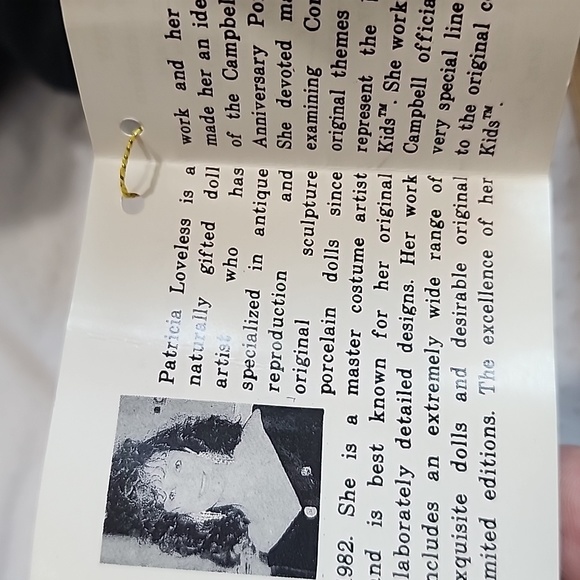 Patricia Loveless is a
naturally gifted doll
artist who has
specialized in antique
reproduction and
original sculpture
porcelain dolls since
982. She is a master costume artist
nd is best known for her original
laborately detailed designs. Her work
ncludes an extremely wide range of
xquisite dolls and desirable original
mited editions. The excellence of her
work and her
made her an ide
of the Campbel
Anniversary Po
She devoted ma
examining Cor
original themes
represent the
Kids™. She work
Campbell officia
very special line
to the original c
Kids™.